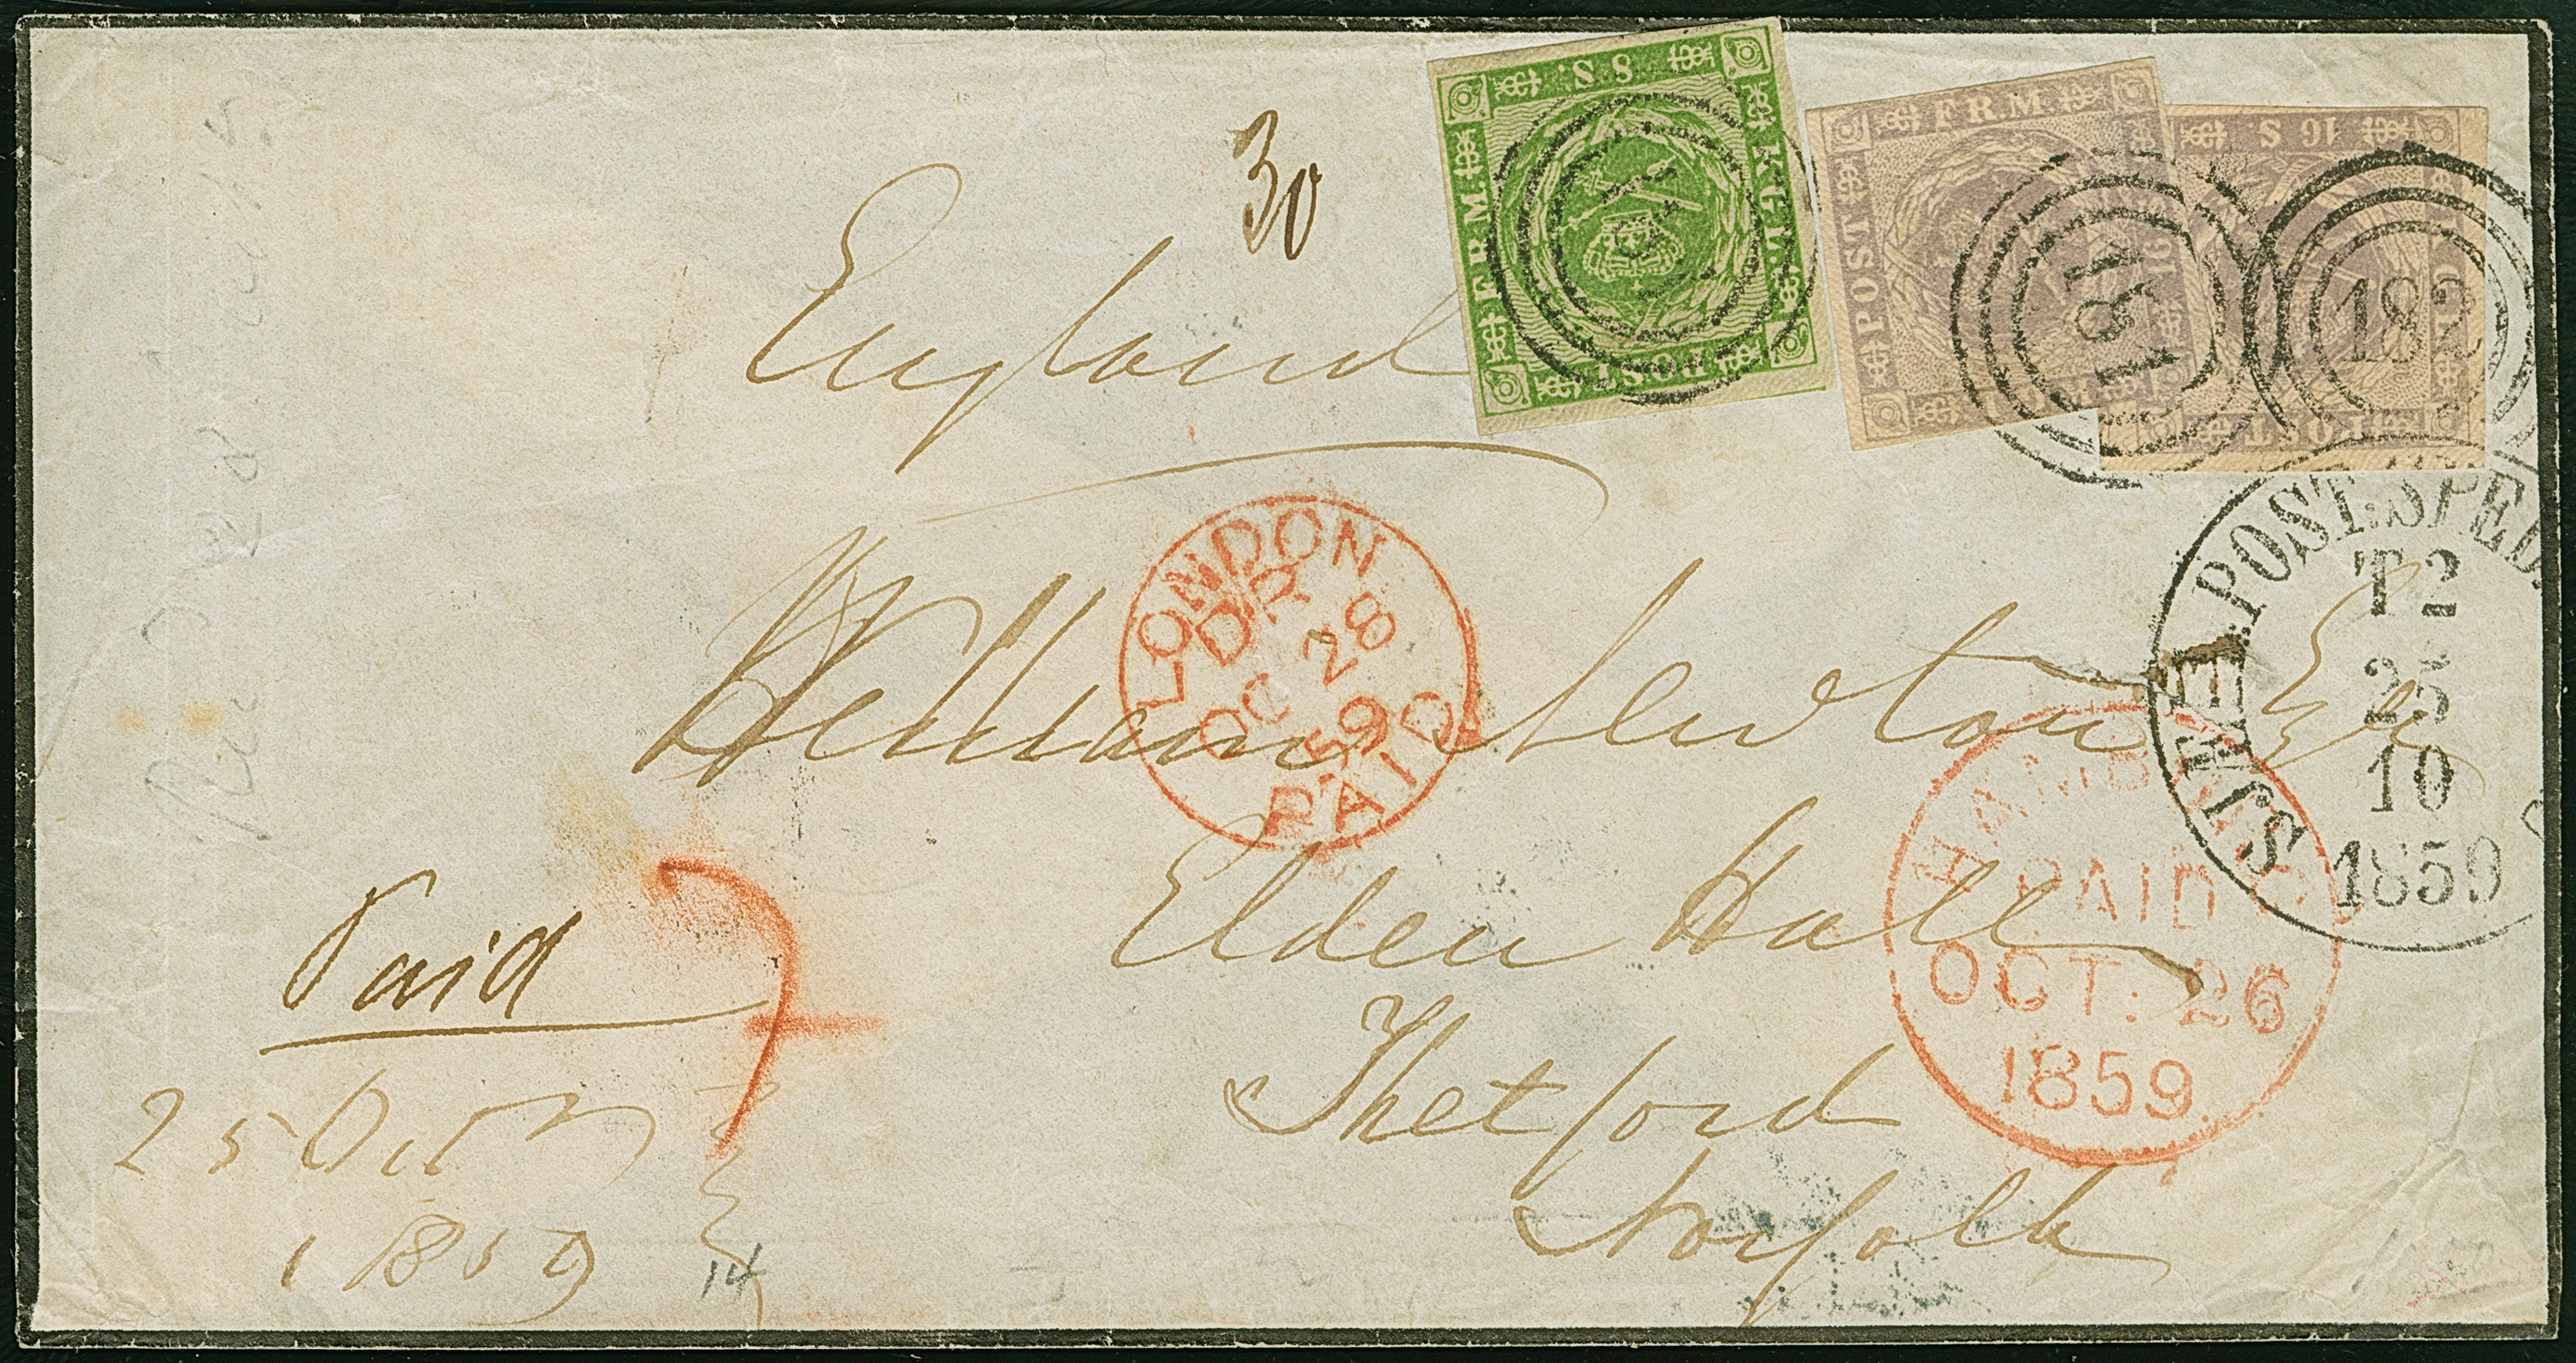 30
England
8 S.
KGL.
POST
FRM.
FRM.
POST
16
181
16 S.
POST
182
SJÆLL. POST. SPED.
T 2
25
10
1859
William Newton Esq
LONDON
OC 28
59
PAID
Elden Hall
HAMBURG
PAID
OCT: 26
1859
Thetford
Norfolk
Paid
7
25 Oct
1859
14